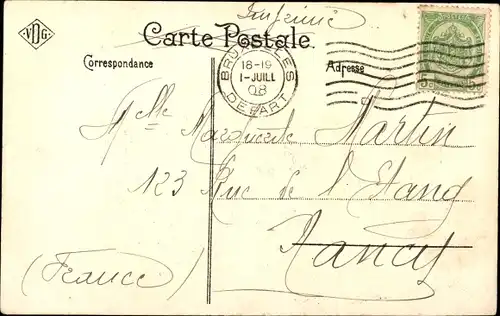 Imprimé
VDG
Carte Postale.
Correspondance
Adresse
BRUXELLES
18-19
1-JUILL
08
DÉPART
5c 5c
Mlle Marguerite Martin
123 Rue de l'Etang
Nancy
(France)